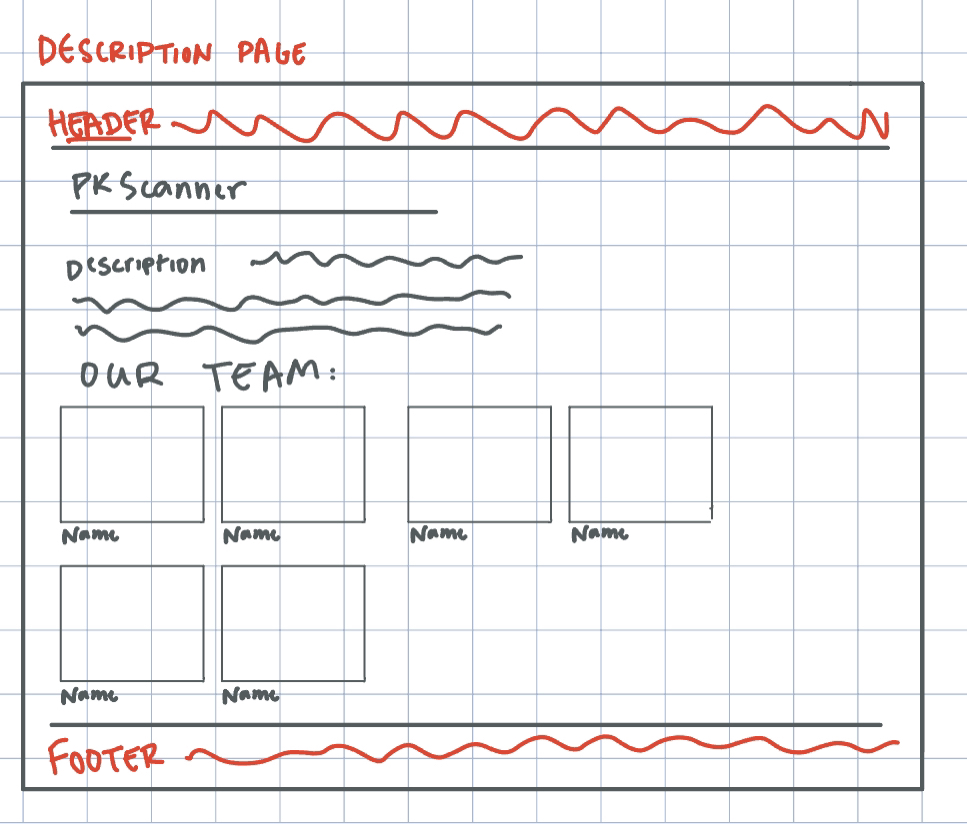 DESCRIPTION PAGE
HEADER
PK Scanner
Description
OUR TEAM:
Name Name Name Name
Name Name
FOOTER